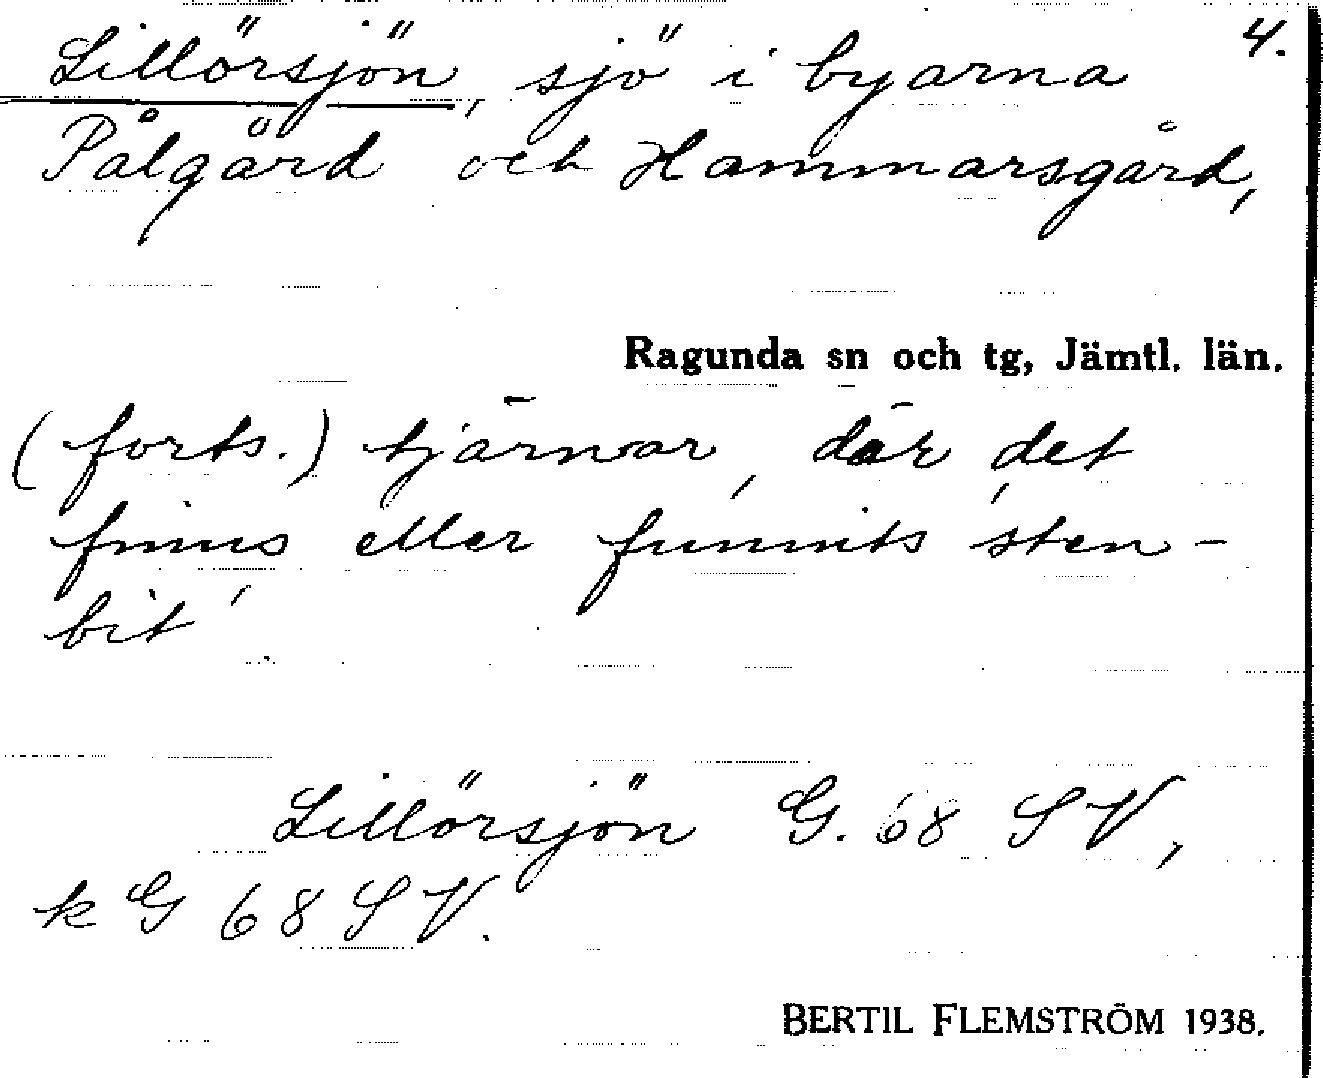 4.
Lillörsjön, sjö i byarna
Pålgård och Hammarsgård,
Ragunda sn och tg, Jämtl. län.
(forts.) tjärnar, där det
finns eller funnits sten-
bit
Lillörsjön G. 68 SV,
k G 68 SV.
BERTIL FLEMSTRÖM 1938.